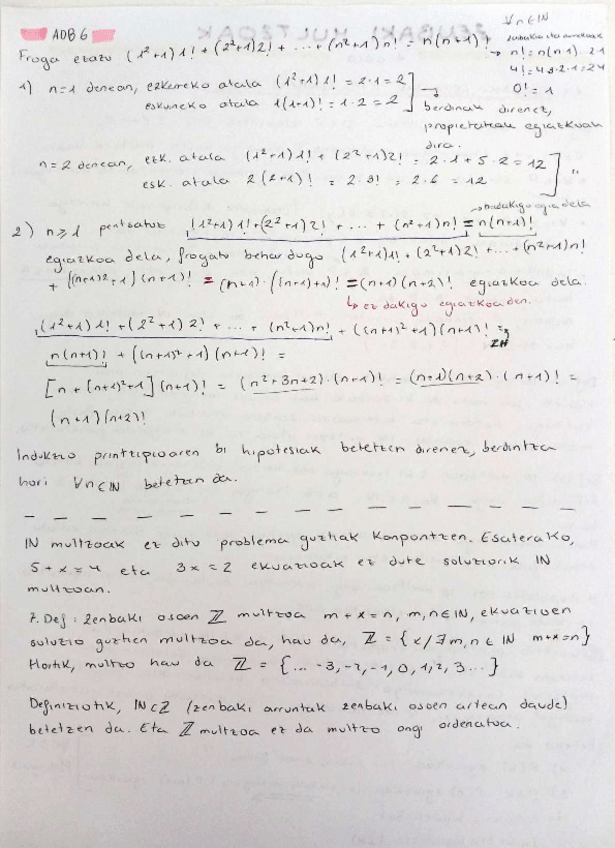 ADB 6
∀n∈IN
Froga ezazu (1²+1)1! + (2²+1)2! + ... + (n²+1)n! = n(n+1)!
→ n! = n(n-1)...2·1
4! = 4·3·2·1 = 24
0! = 1
1) n=1 denean, ezkerreko atala (1²+1)1! = 2·1 = 2
eskuineko atala 1(1+1)! = 1·2 = 2
→ berdinak direnez,
propietateak egiazkoak
dira.
n=2 denean, ezk. atala (1²+1)1! + (2²+1)2! = 2·1 + 5·2 = 12
esk. atala 2(2+1)! = 2·3! = 2·6 = 12 "
→ badakigu egia dela
2) n≥1 pentsatuz (1²+1)1! + (2²+1)2! + ... + (n²+1)n! = n(n+1)!
egiazkoa dela, frogatu behar dugu (1²+1)1! + (2²+1)2! + ... + (n²+1)n!
+ ((n+1)²+1)(n+1)! = (n+1)·((n+1)+1)! = (n+1)(n+2)! egiazkoa dela.
↳ ez dakigu egiazkoa den.
(1²+1)1! + (2²+1)2! + ... + (n²+1)n! + ((n+1)²+1)(n+1)! =
n(n+1)! + ((n+1)²+1)(n+1)! =
[n+(n+1)²+1](n+1)! = (n²+3n+2)·(n+1)! = (n+1)(n+2)·(n+1)! =
(n+1)(n+2)!
Indukzio printzipioaren bi hipotesiak betetzen direnez, berdintza
hori ∀n∈IN betetzen da.
IN multzoak ez ditu problema guztiak konpontzen. Esaterako,
5+x=4 eta 3x=2 ekuazioak ez dute soluziorik IN
multzoan.
7. Def: Zenbaki osoen ℤ multzoa m+x=n, m,n∈IN, ekuazioen
soluzio guztien multzoa da, hau da, ℤ = {x/∃m,n∈IN m+x=n}
Hortik, multzo hau da ℤ = {... -3,-2,-1,0,1,2,3...}
Definiziotik, IN⊂ℤ (zenbaki arruntak zenbaki osoen artean daude)
betetzen da. Eta ℤ multzoa ez da multzo ongi ordenatua.